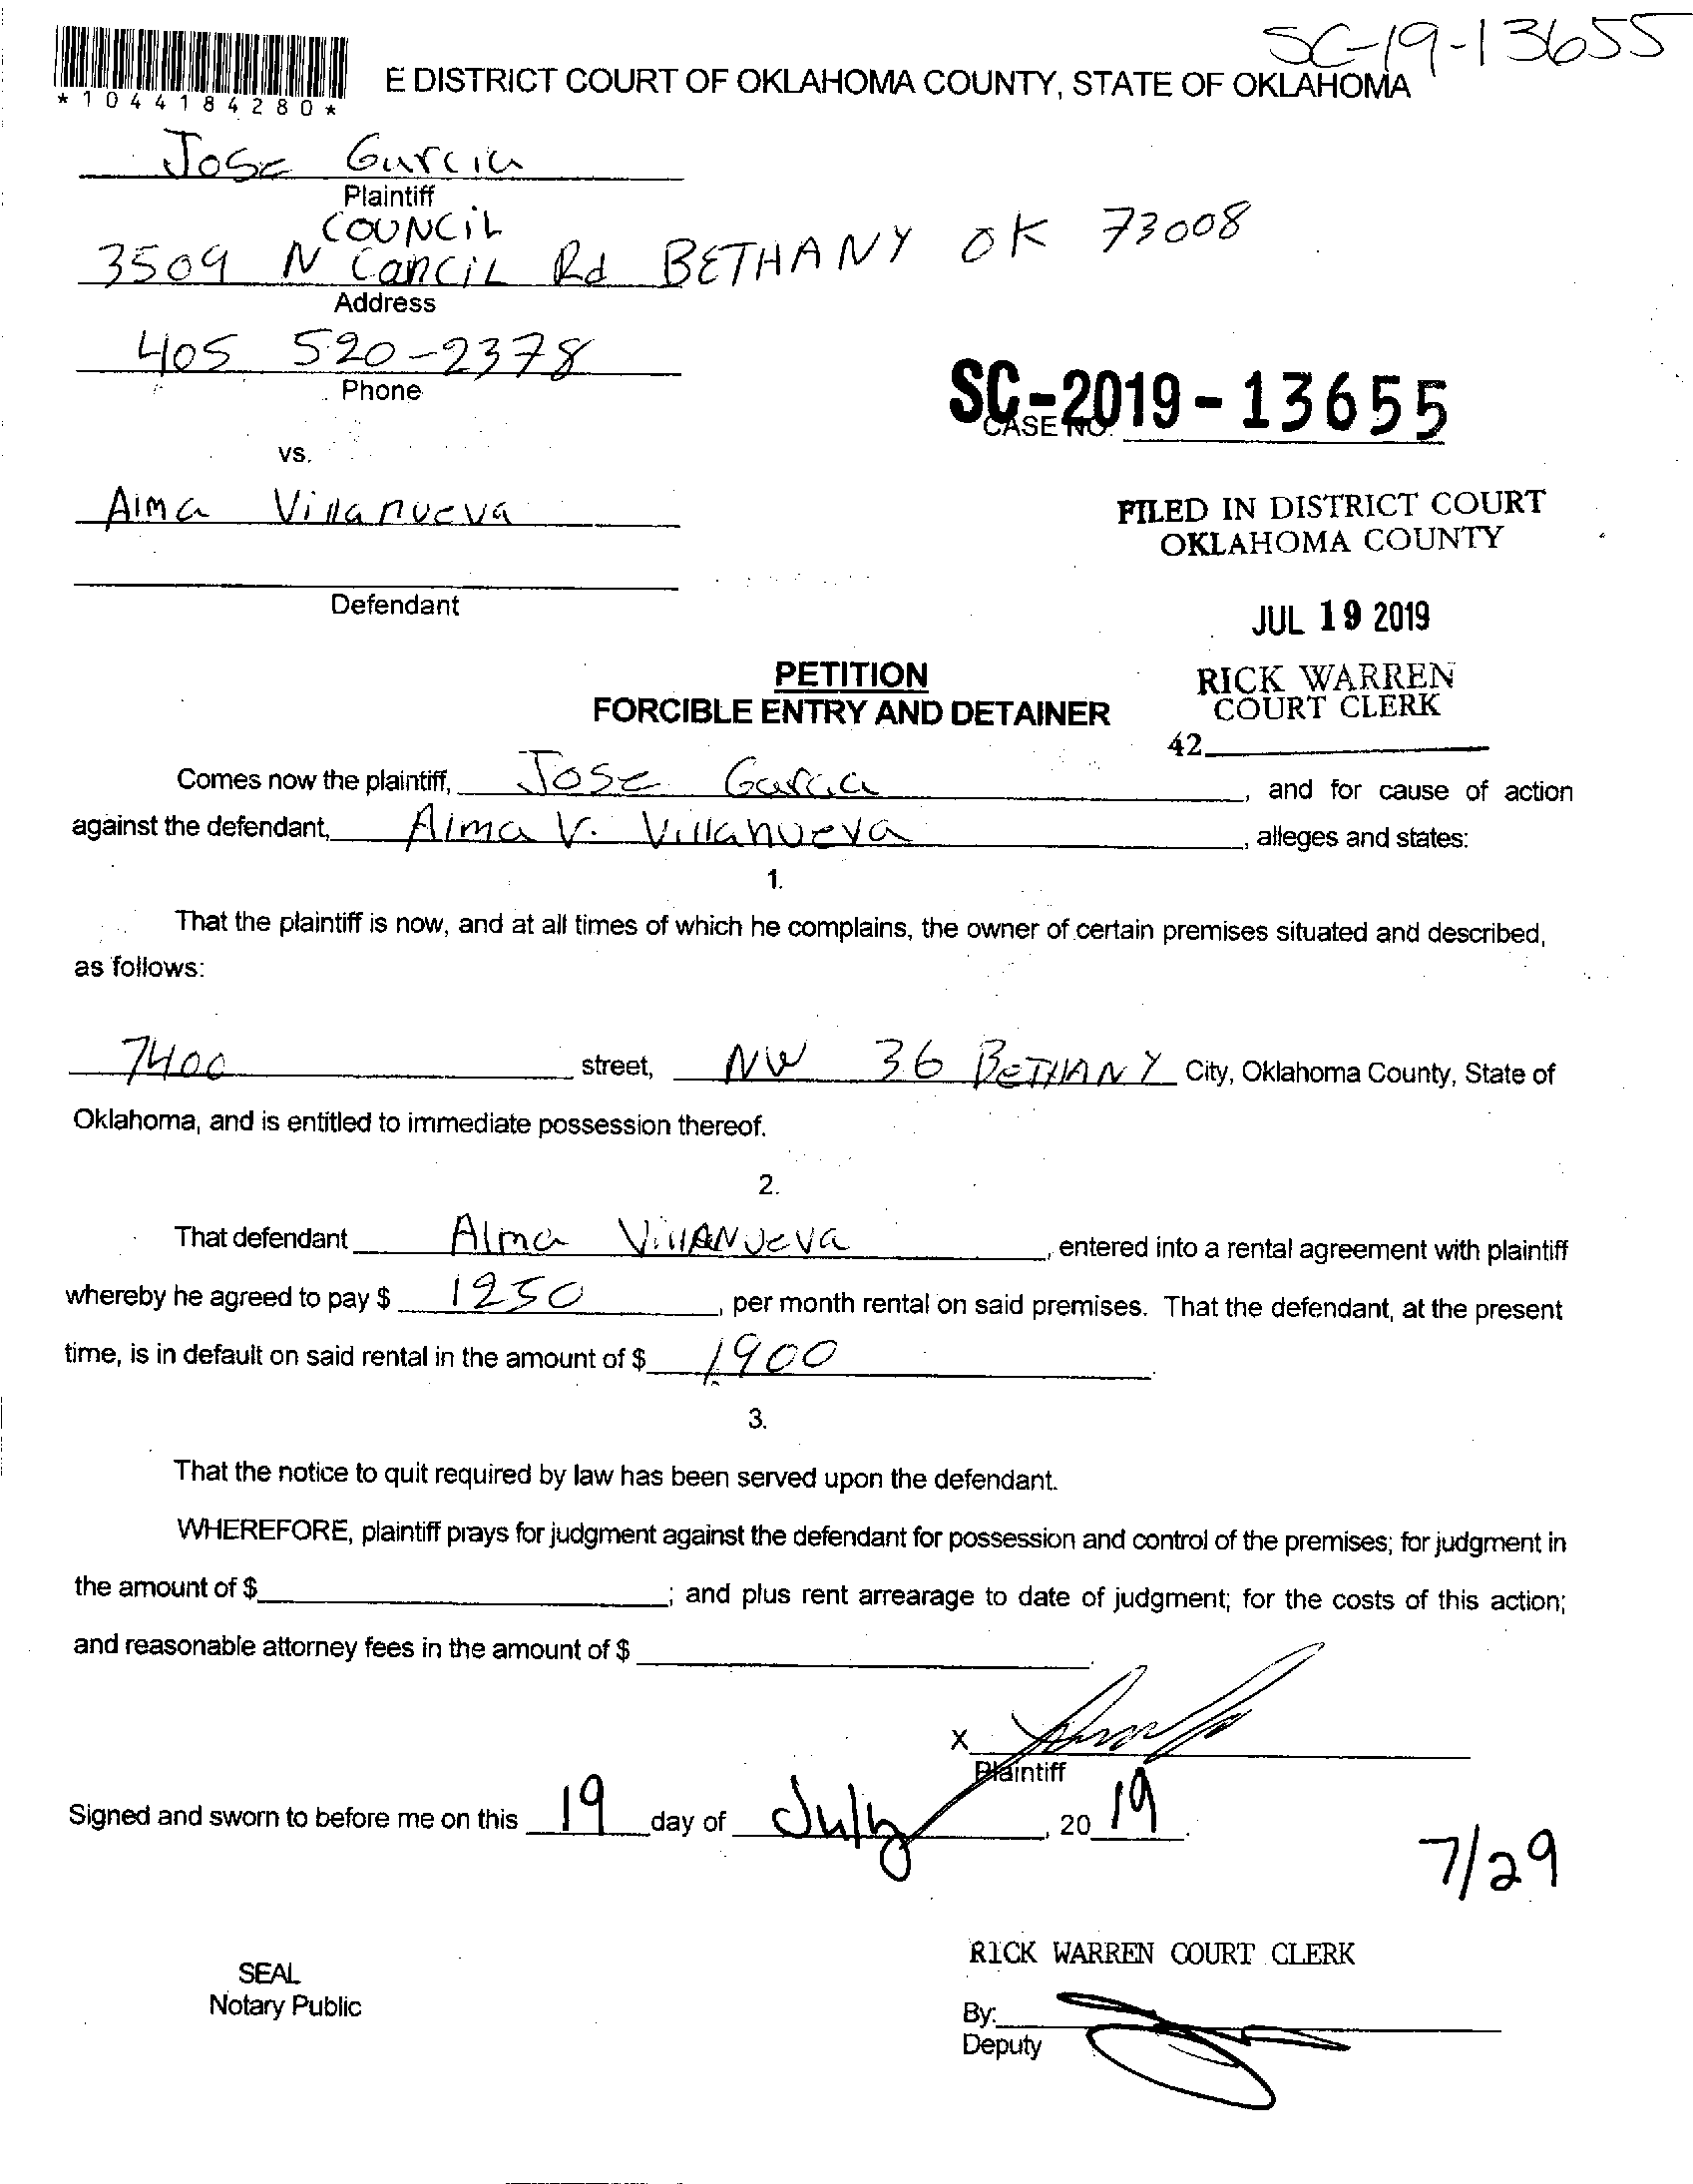 SC-19-13655
E DISTRICT COURT OF OKLAHOMA COUNTY, STATE OF OKLAHOMA
*1044184280*
Jose Garcia
Plaintiff
COUNCIL
3509 N Concil Rd BETHANY OK 73008
Address
405 520-2378
Phone
SC-2019-13655
CASE NO.
vs.
Alma Villanueva
FILED IN DISTRICT COURT
OKLAHOMA COUNTY
Defendant
JUL 19 2019
PETITION
FORCIBLE ENTRY AND DETAINER
RICK WARREN
COURT CLERK
42
Comes now the plaintiff, Jose Garcia, and for cause of action
against the defendant, Alma V. Villanueva, alleges and states:
1.
That the plaintiff is now, and at all times of which he complains, the owner of certain premises situated and described,
as follows:
7400 street, NW 36 BETHANY City, Oklahoma County, State of
Oklahoma, and is entitled to immediate possession thereof.
2.
That defendant Alma VillANUeva, entered into a rental agreement with plaintiff
whereby he agreed to pay $ 1250, per month rental on said premises. That the defendant, at the present
time, is in default on said rental in the amount of $ 1900
3.
That the notice to quit required by law has been served upon the defendant.
WHEREFORE, plaintiff prays for judgment against the defendant for possession and control of the premises; for judgment in
the amount of $ ; and plus rent arrearage to date of judgment; for the costs of this action;
and reasonable attorney fees in the amount of $ .
X
Plaintiff
Signed and sworn to before me on this 19 day of July, 20 19.
7/29
RICK WARREN COURT CLERK
SEAL
Notary Public
By:
Deputy